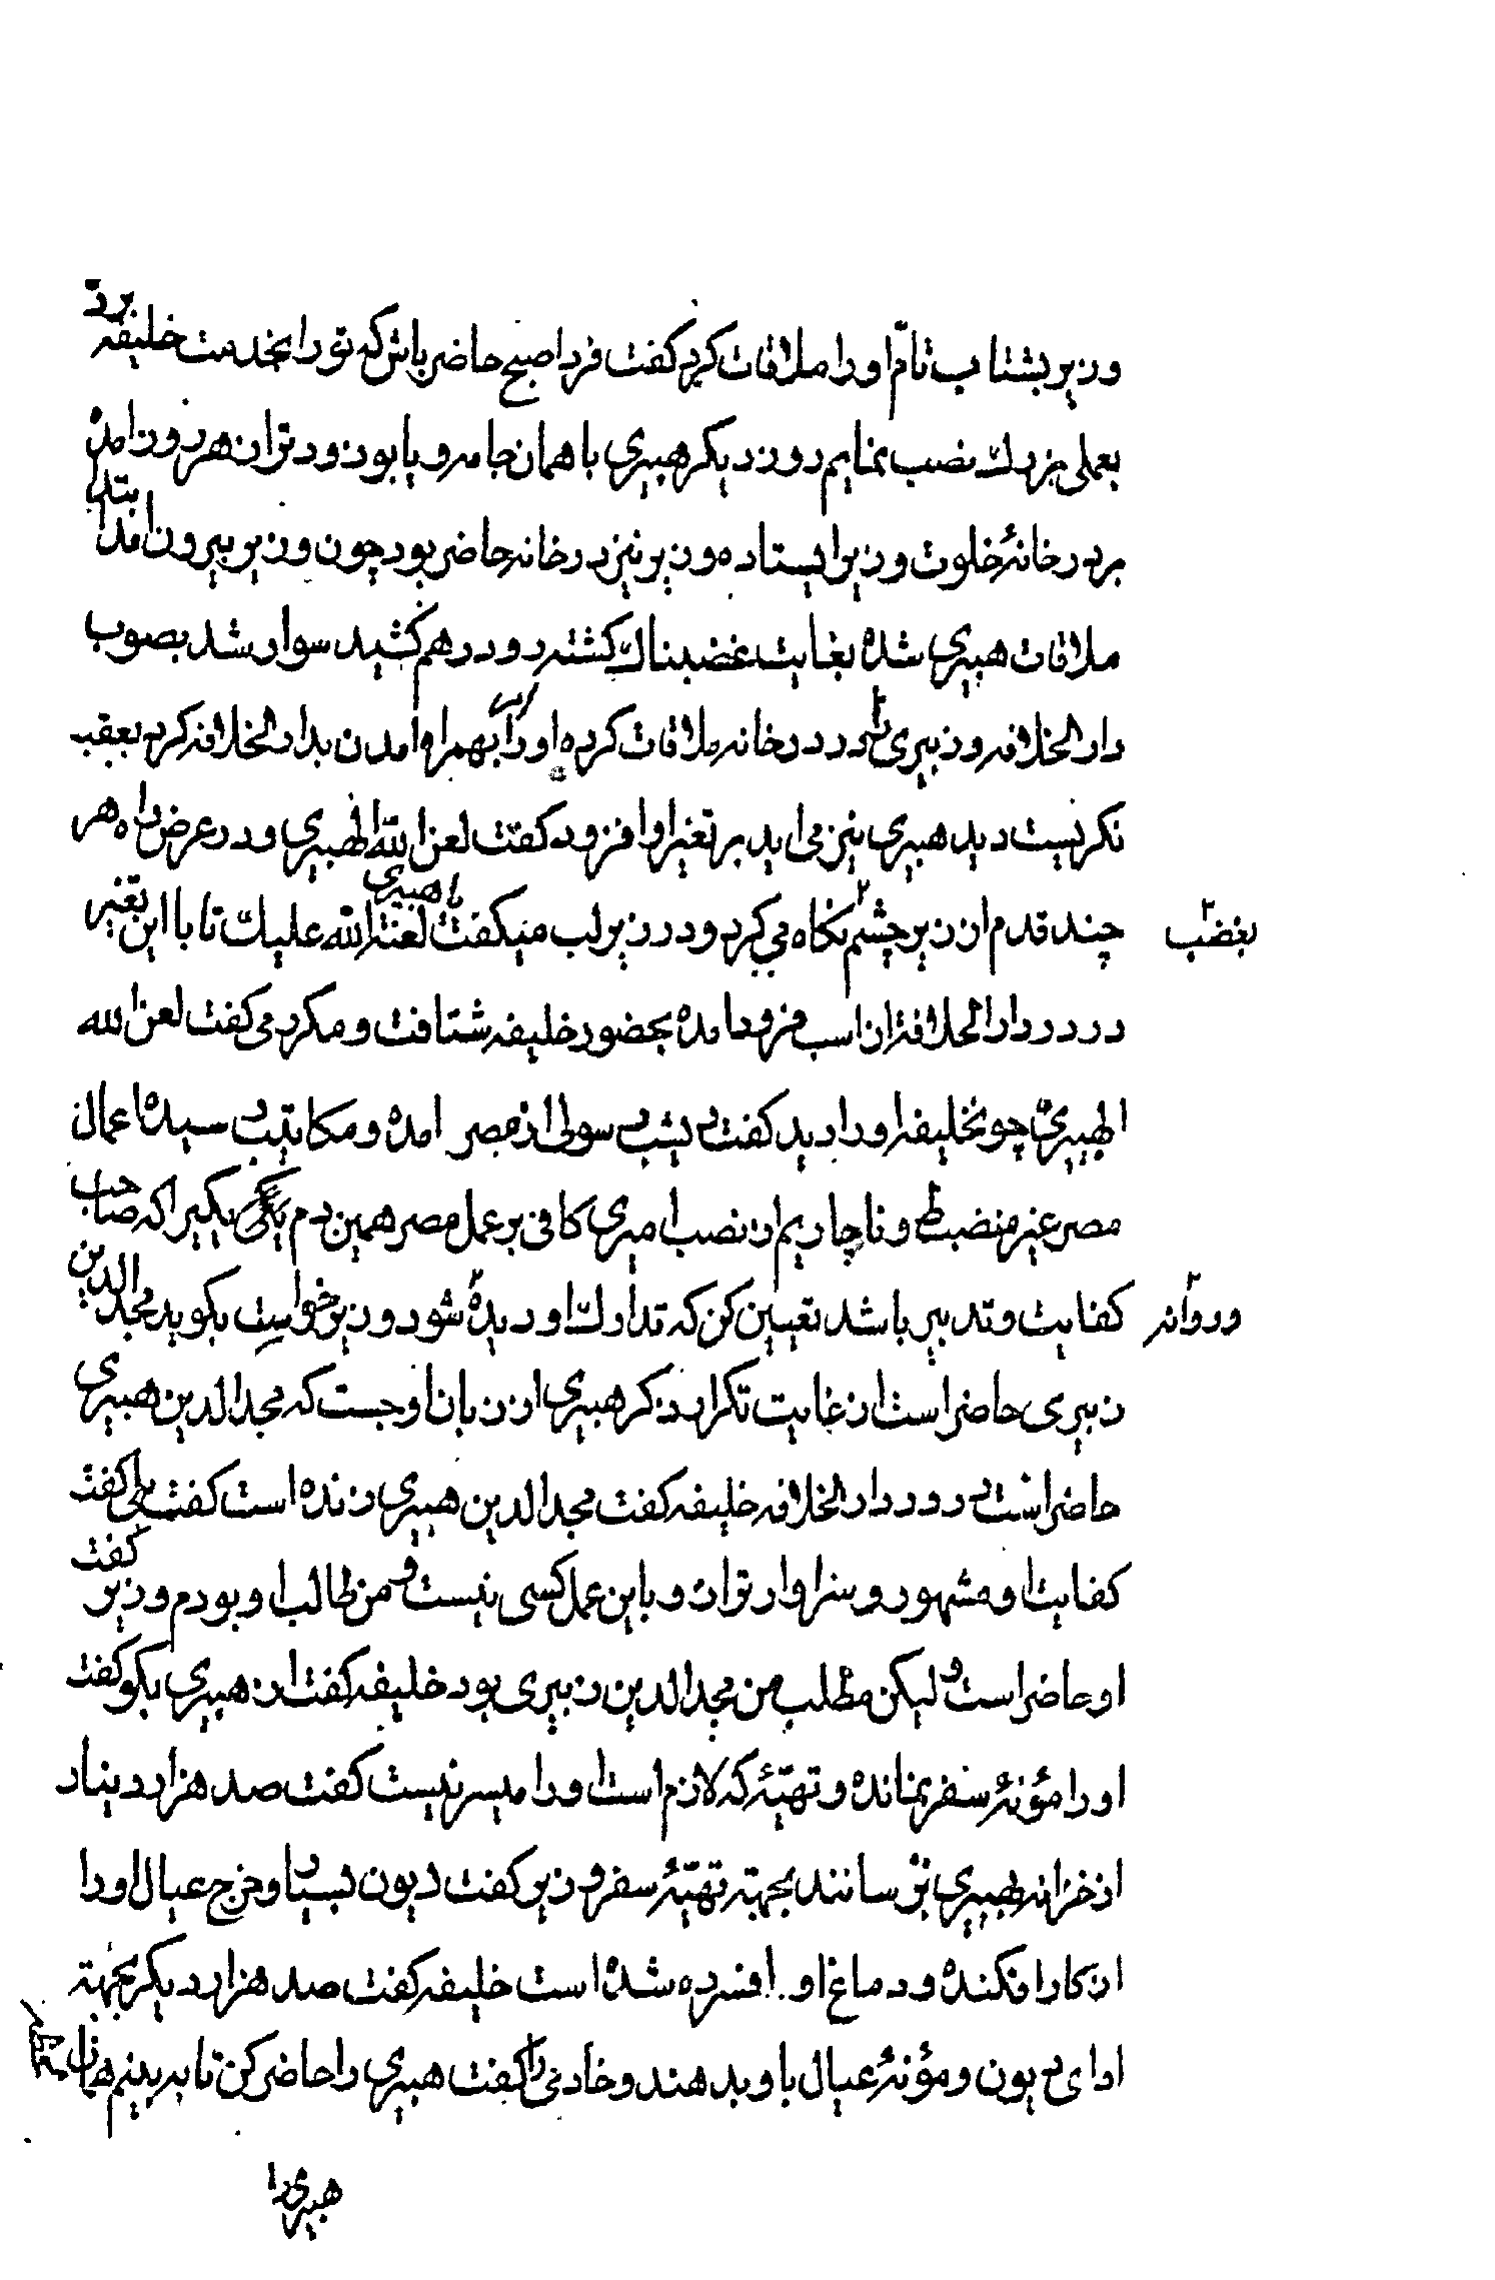 وزیر بشتاب تام او را ملاقات کرد کفت فردا صبح حاضر باش که تو را بخدمت خلیفه برد
بعملی بزرك نصب نمایم روز دیکر هبیری با همان جامه و پابوز ودتر از هر روز امده
بر در خانۀ خلوت وزیر ایستاده وزیر نیز در خانه حاضر بود چون وزیر بیرون امد ابتدا
ملاقات هبیری شده بغایت غضبناك کشته رو در هم کشید سوار شد بصوب
دار الخلافه و زبیری را در در خانه ملاقات کرده او را بهمراه امدن بدار الخلافه کرد بعقب
نکریست دید هبیری نیز می اید بر تغیر او افزود کفت لعن الله الهبیری و در عرض راه هر
چند قدم از زیر چشم نکاه می کرد و در زیر لب میکفت یا هبیری لعنة الله علیك تا با این تغیر
بغضب
در در دار الخلافة از اسب فرود امده بحضور خلیفه شتافت و مکرر می کفت لعن الله
الهبیری چون خلیفه او را دید کفت دیشب رسولی از مصر امده و مکاتیب رسیده اعمال
مصر غیر منضبط و ناچاریم از نصب امیری کافی بر عمل مصر همین دم یکی بکیر اکه صاحب
کفایت و تدبیر باشد تعیین کن که تدارك او دیده شود وزیر خواست بکوید مجد الدین
و روانه
زبیری حاضر است از غایت تکرار ذکر هبیری از زبان او جست که مجد الدین هبیری
حاضر است در در دار الخلافه خلیفه کفت مجد الدین هبیری زنده است کفت بلی کفت
کفایت او مشهور و سزاوارتر از او باین عمل کسی نیست و من طالب او بودم وزیر کفت
او حاضر است و لیکن مطلب من مجد الدین زبیری بود خلیفه کفت از هبیری بکو کفت
او را مؤنۀ سفر نمانده و تهیّۀ که لازم است او را میسر نیست کفت صد هزار دینار
از خزانه بهبیری برسانند بجهتة تهیّۀ سفر وزیر کفت دیون بسیار و خرج عیال او را
از کار افکنده و دماغ او افسرده شده است خلیفه کفت صد هزار دیکر بجهتة
ادای دیون و مؤنۀ عیال باو بدهند و خادمی را کفت هبیری را حاضر کن تا ببینیم همان
هبیری را